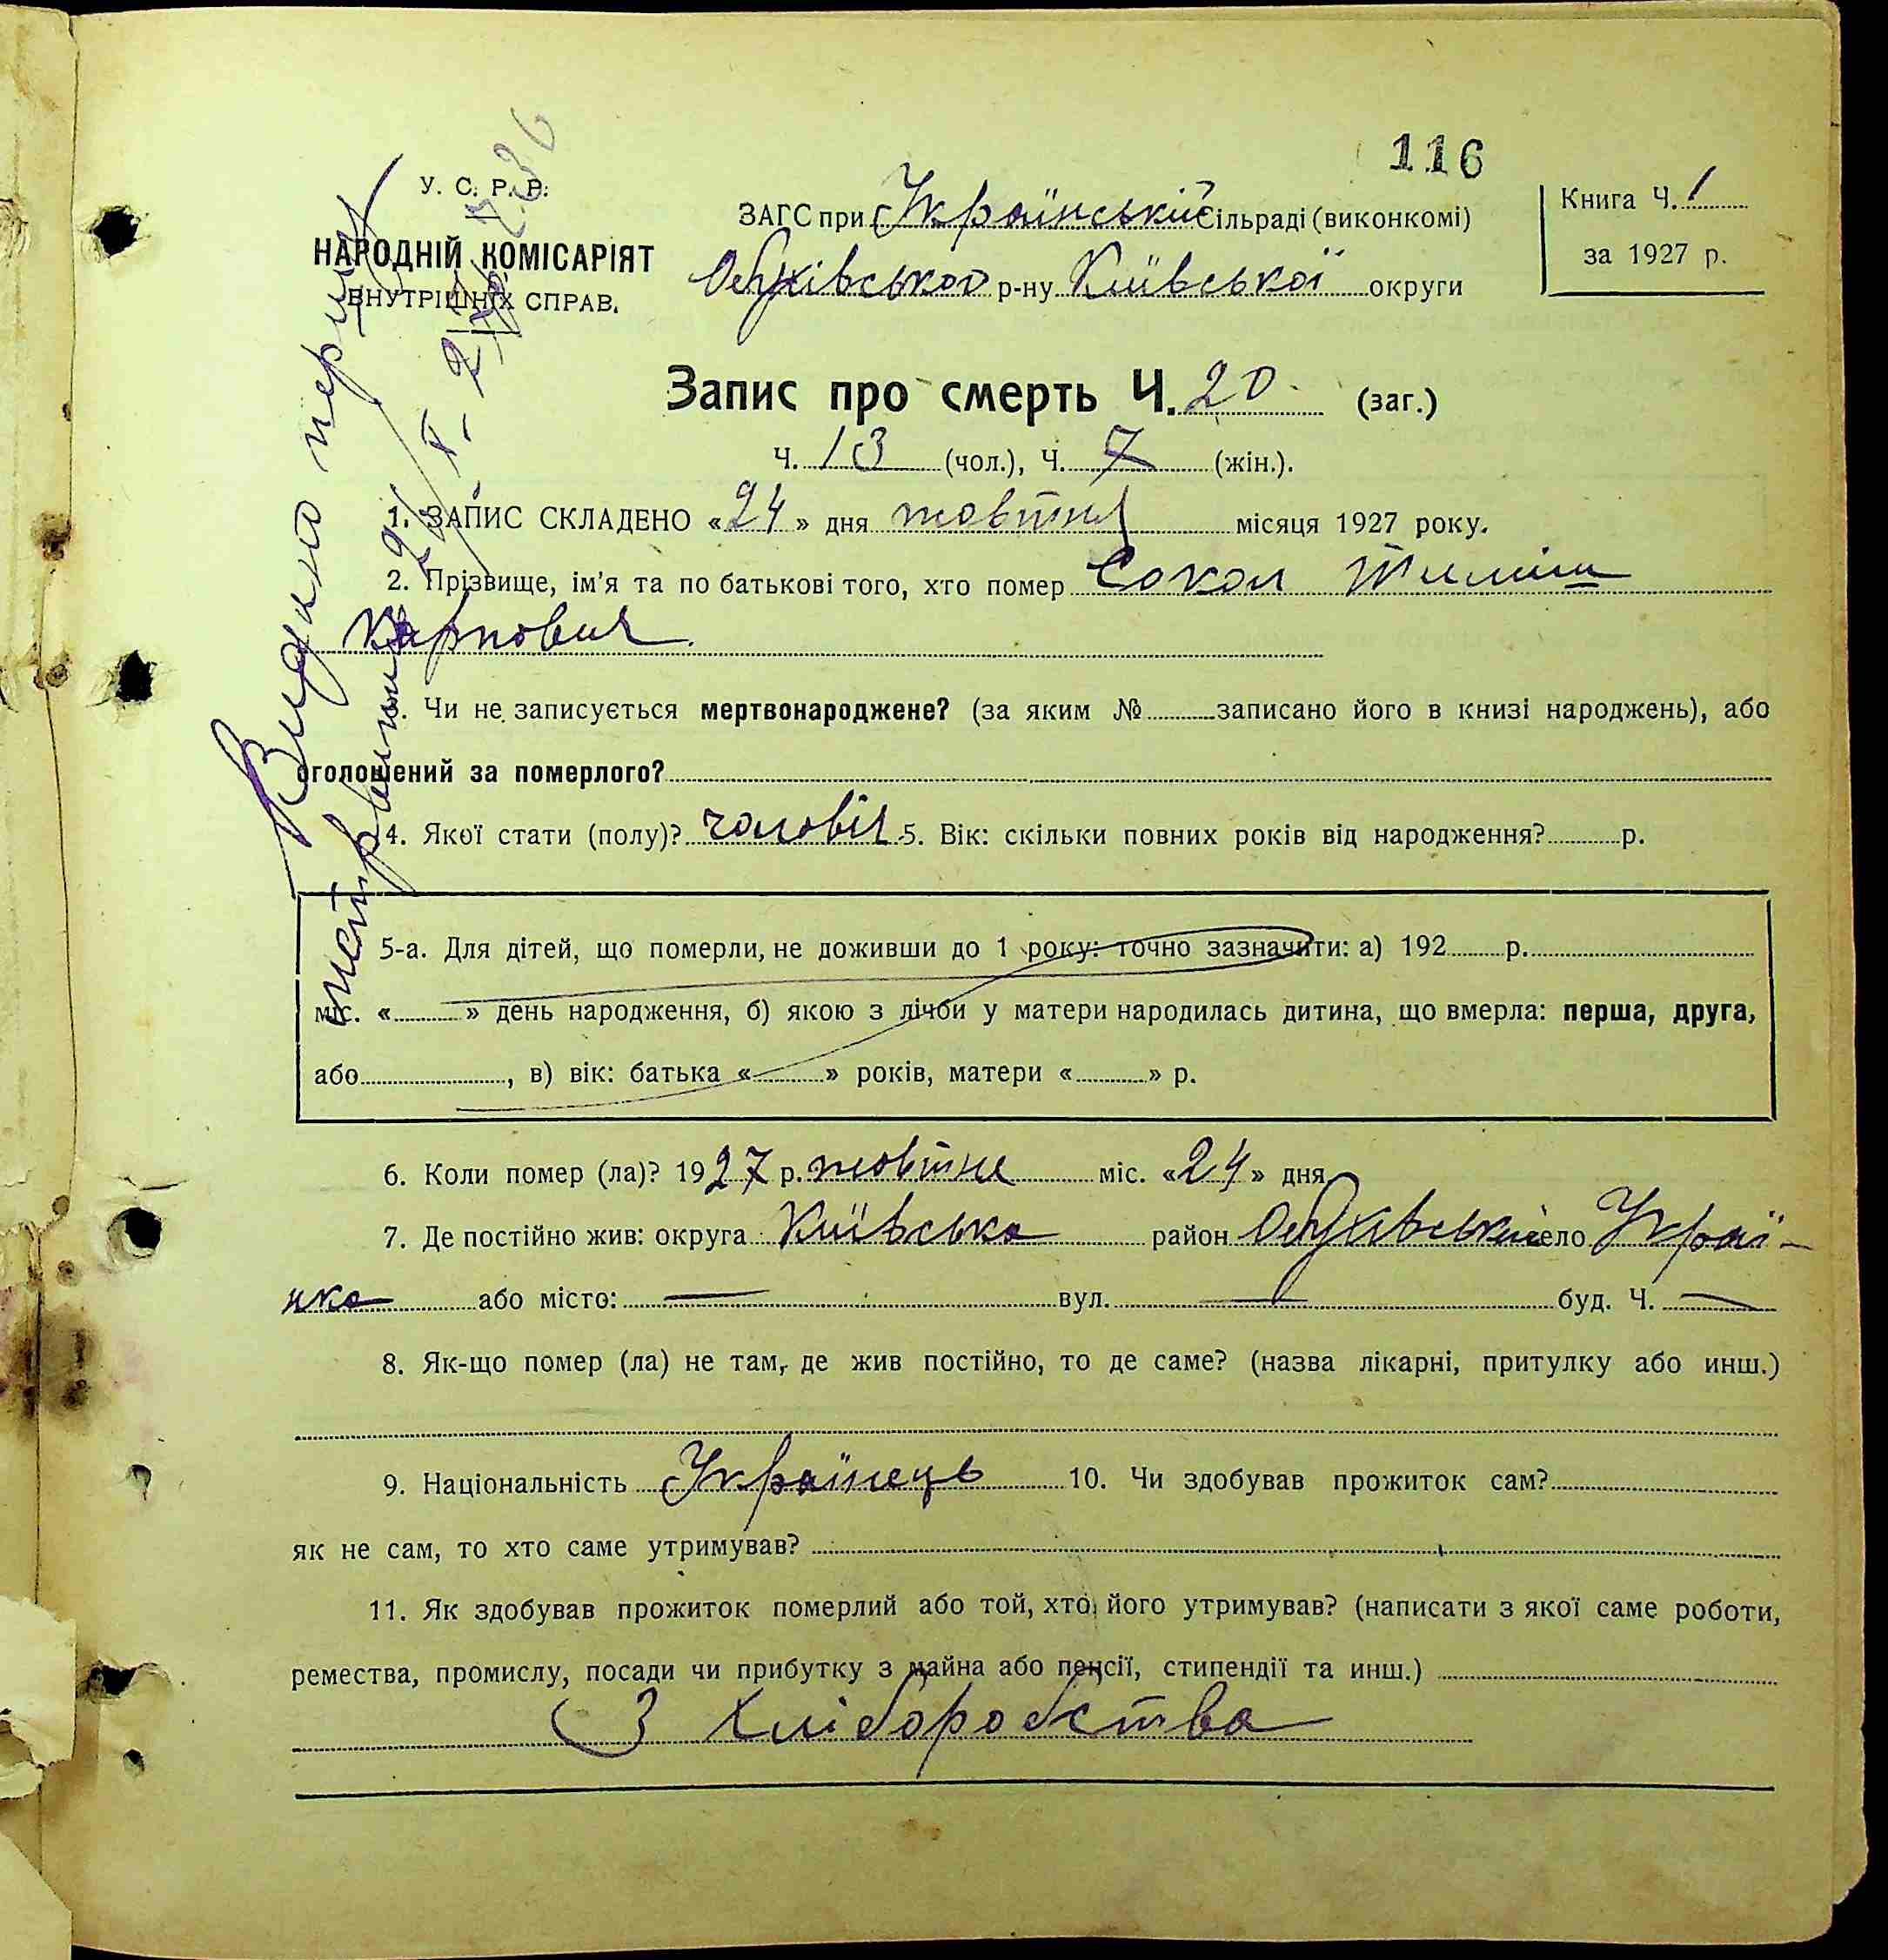 116
У. С. Р. Р.
НАРОДНІЙ КОМІСАРІЯТ
ВНУТРІШНІХ СПРАВ.
ЗАГС при Українській Сільраді (виконкомі)
Обухівського р-ну Київської округи
Книга Ч. 1
за 1927 р.
Запис про смерть Ч. 20 (заг.)
Ч. 13 (чол.), Ч. 7 (жін.).
1. ЗАПИС СКЛАДЕНО «24» дня жовтня місяця 1927 року.
2. Прізвище, ім'я та по батькові того, хто помер Сокол Тиміш
Карпович.
3. Чи не записується мертвонароджене? (за яким № записано його в книзі народжень), або
оголошений за померлого?
4. Якої стати (полу)? чоловіч 5. Вік: скільки повних років від народження? р.
5-а. Для дітей, що померли, не доживши до 1 року: точно зазначити: а) 192 р.
міс. « » день народження, б) якою з лічби у матери народилась дитина, що вмерла: перша, друга,
або , в) вік: батька « » років, матери « » р.
6. Коли помер (ла)? 1927 р. жовтня міс. «24» дня
7. Де постійно жив: округа Київська район Обухівський село Украї-
нка або місто: — вул. — буд. Ч. —
8. Як-що помер (ла) не там, де жив постійно, то де саме? (назва лікарні, притулку або инш.)
9. Національність Українець 10. Чи здобував прожиток сам?
як не сам, то хто саме утримував?
11. Як здобував прожиток померлий або той, хто його утримував? (написати з якої саме роботи,
ремества, промислу, посади чи прибутку з майна або пенсії, стипендії та инш.)
З хліборобства
Видано